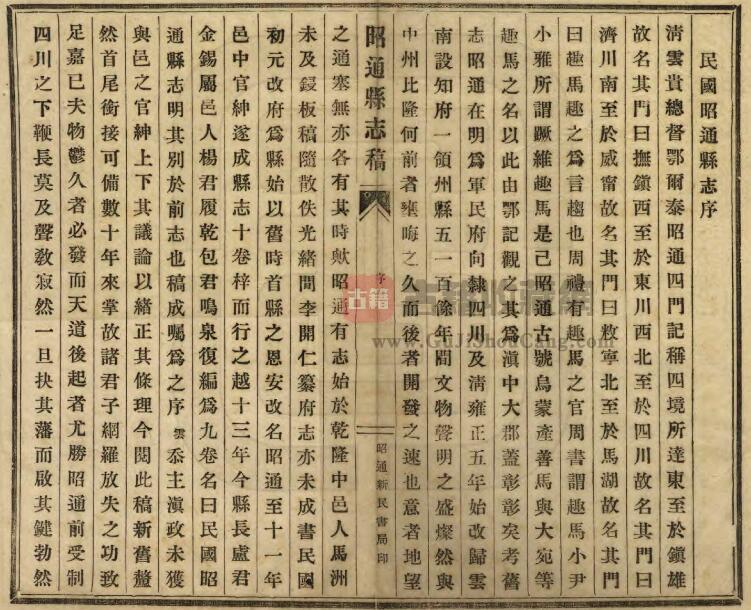 民國昭通縣志序
清雲貴總督鄂爾泰昭通四門記稱四境所達東至於鎮雄
故名其門曰撫鎮西至於東川西北至於四川故名其門曰
濟川南至於威甯故名其門曰敉寧北至於馬湖故名其門
曰趣馬趣之爲言趨也周禮有趣馬之官周書謂趣馬小尹
小雅所謂蹶維趣馬是已昭通古號烏蒙產善馬與大宛等
趣馬之名以此由鄂記觀之其爲滇中大郡蓋彰彰矣考舊
志昭通在明爲軍民府向隸四川及清雍正五年始改歸雲
南設知府一領州縣五一百餘年間文物聲明之盛燦然與
中州比隆何前者壅晦之久而後者開發之速也意者地望
昭通縣志稿
序
昭通新民書局印
之通塞無亦各有其時歟昭通有志始於乾隆中邑人馬洲
未及鋟板稿隨散佚光緒間李開仁纂府志亦未成書民國
初元改府爲縣始以舊時首縣之恩安改名昭通至十一年
邑中官紳遂成縣志十卷梓而行之越十三年今縣長盧君
金錫屬邑人楊君履乾包君鳴泉復編爲九卷名曰民國昭
通縣志明其別於前志也稿成囑爲之序雲忝主滇政未獲
與邑之官紳上下其議論以緒正其條理今閱此稿新舊釐
然首尾銜接可備數十年來掌故諸君子網羅放失之功致
足嘉已夫物鬱久者必發而天道後起者尤勝昭通前受制
四川之下鞭長莫及聲教寂然一旦抉其藩而啟其鍵勃然
古籍收藏網
www.GuJiShouCang.com